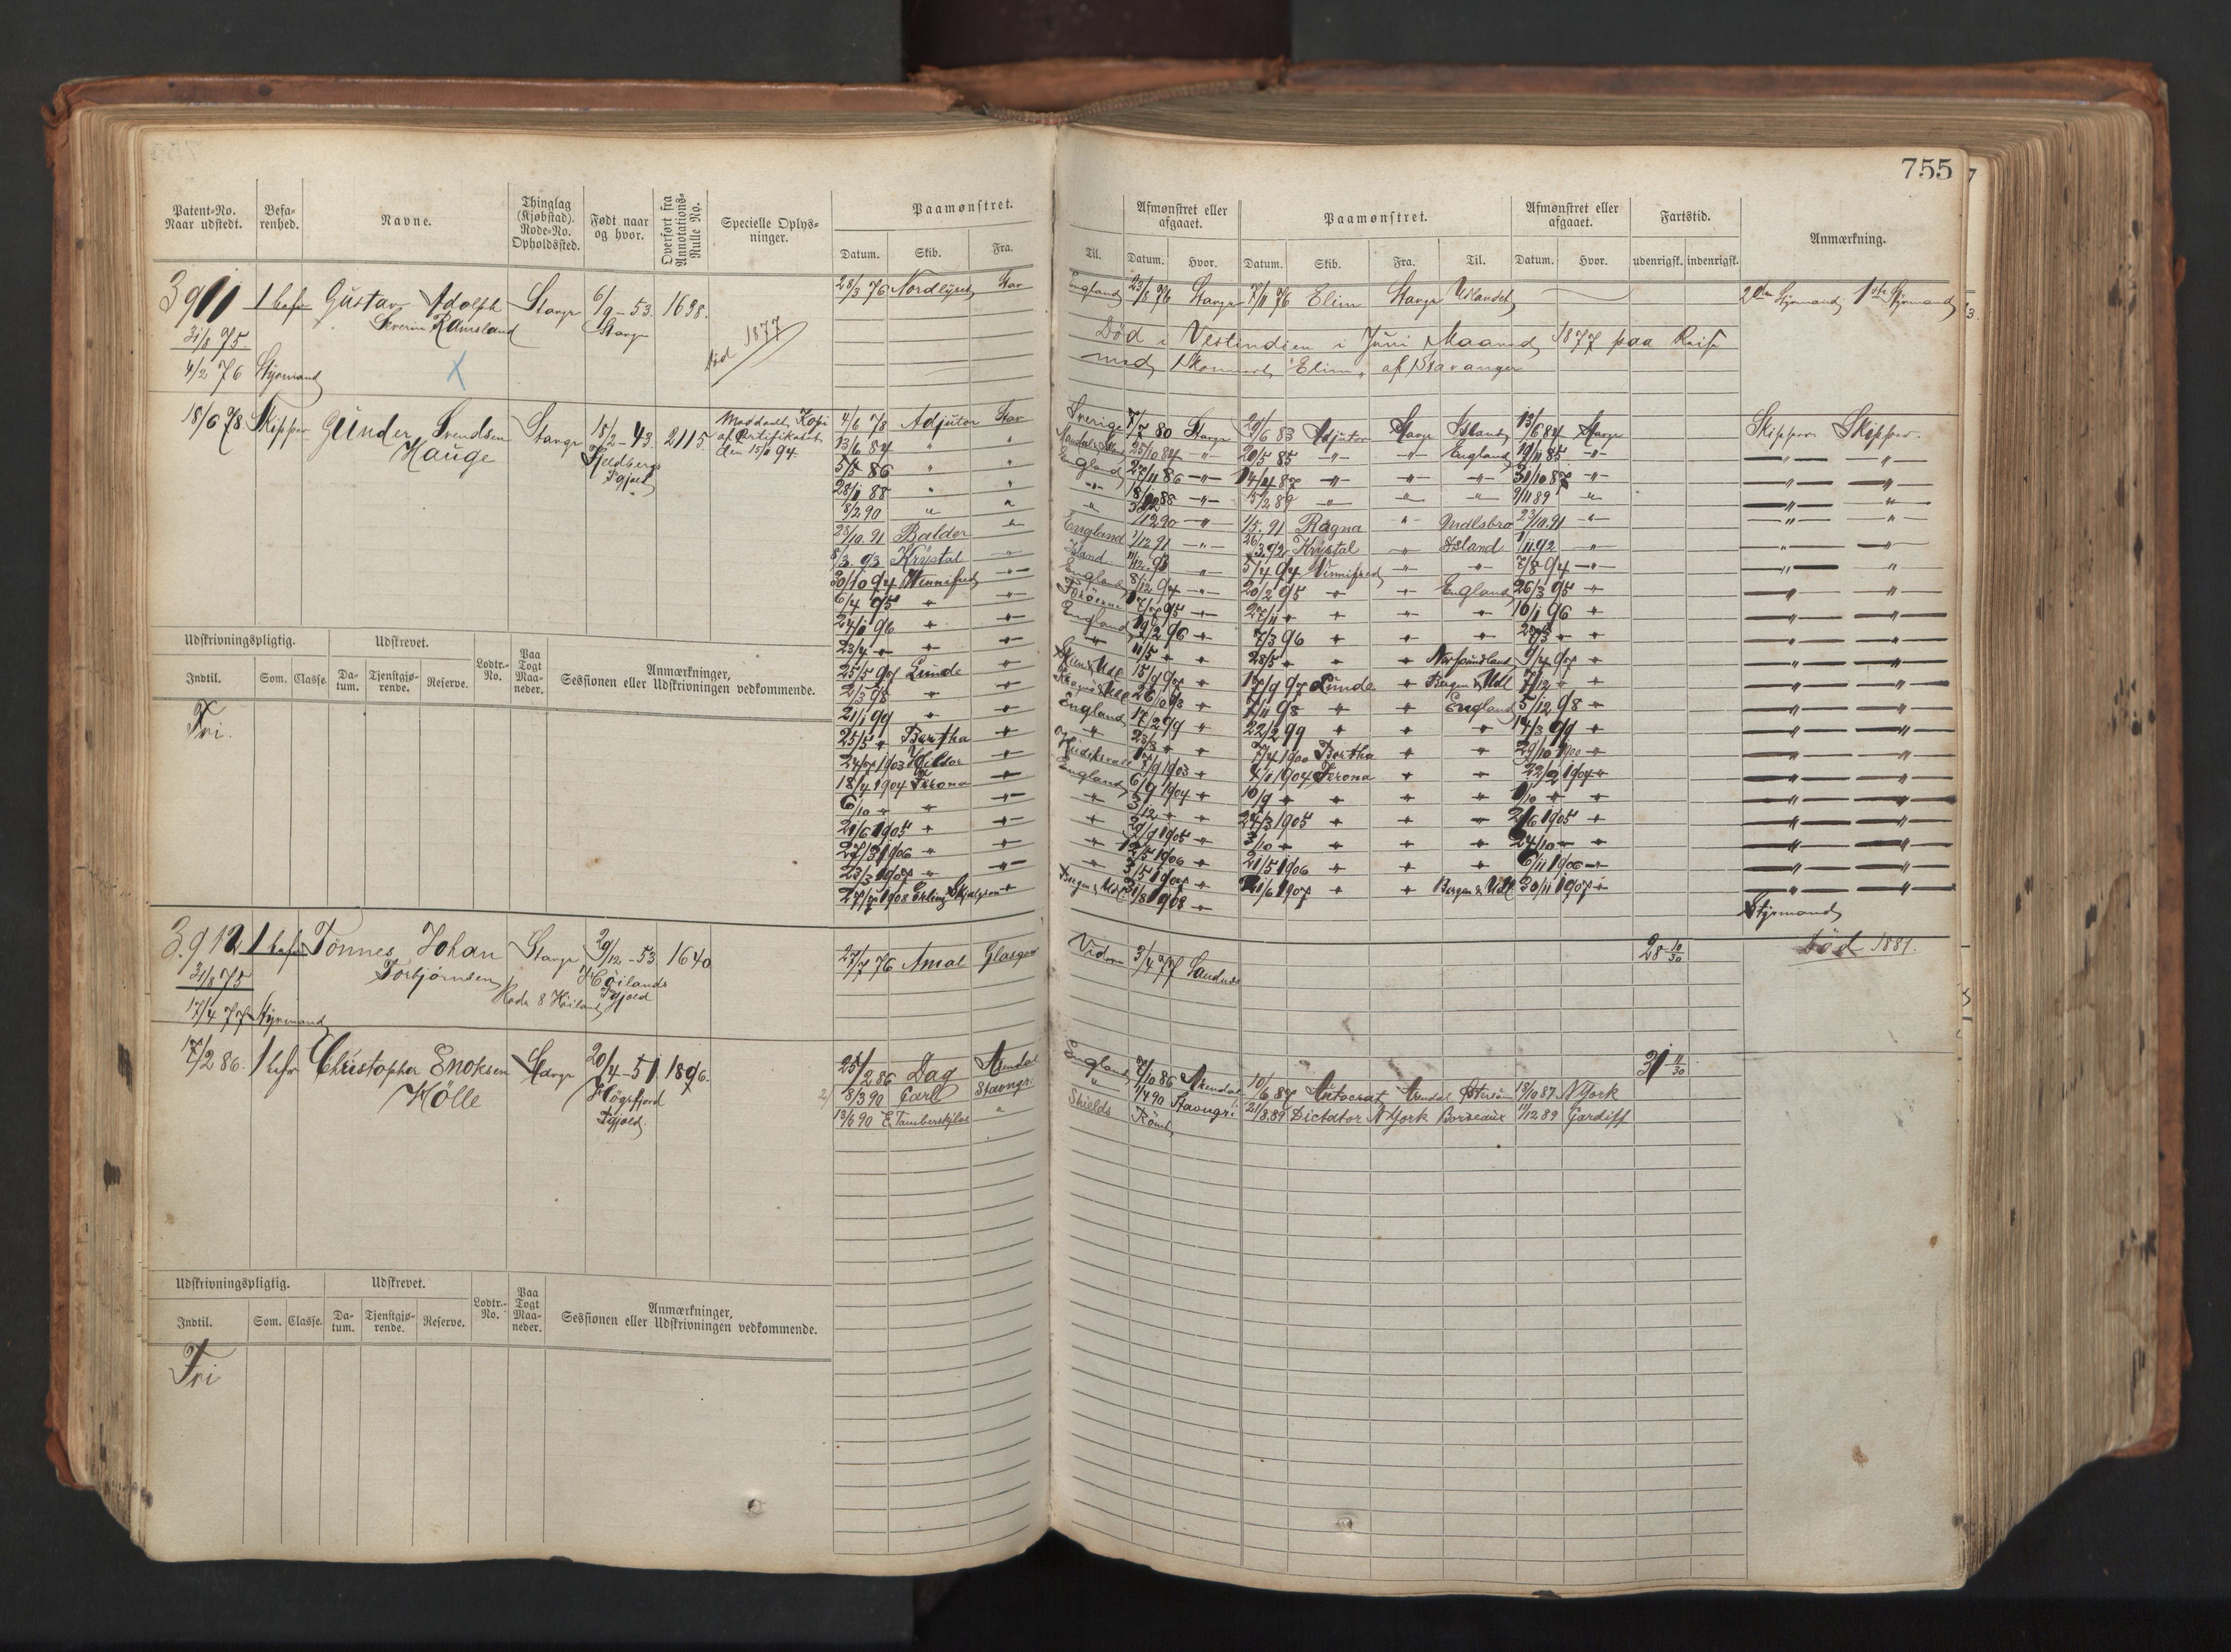 755
Patent-No. Naar udstedt.
Befa-renhed.
Navne.
Thinglag (Kjøbstad). Rode-No. Opholdssted.
Født naar og hvor.
Overført fra Annotations-Rulle No.
Specielle Oplys-ninger.
Paamønstret.
Datum. Skib. Fra. Til.
Afmønstret eller afgaaet.
Datum. Hvor.
Paamønstret.
Datum. Skib. Fra. Til.
Afmønstret eller afgaaet.
Datum. Hvor.
Fartstid.
udenrigsk. indenrigsk.
Anmærkning.
3911 1 befr Gustav Adolph Stavgr 6/9-53. 1638. 28/3 76 Nordlyset Stav England 23/8 76 Stavgr 7/11 76 Elim Stavgr Udlandet 2den Styrmand 1ste Styrmand
Severin Ramsland Stavgr
31/8 75.
død 1877
Død i Vestindien i Juni Maaned 1877 paa Reise
med Skonnert "Elim" af Stavanger
4/2 76 Styrmand
18/6 78 Skipper Gunder Svendsen Stavgr 18/2-43. 2115. 4/6 78 Adjutor Stav Sverige 7/7 80 Stavgr 20/6 83 Adjutor Stavgr Island 13/6 84 Stavgr Skipper Skipper.
Hauge
Meddeelt Kopi
af Certifikaet
den 15/ 94.
13/6 84 " " 25/10 84 -"- 20/5 85 -"- -"- England 19/11 85 -"-
5/5 86 " " England 27/11 86 -"- 14/4 87 -"- -"- -"- 31/10 87 -"-
28/1 88 " " -"- -"- 5/2 89 -"- " " 9/11 89 "
8/2 90 " " " /12 90 -"- 1/5. 91 Ragna " 23/10. 91 -"-
28/10. 91 Balder " England 1/12 91 -"- 26/3. 92 Krystal " Island 1/11. 92 -"-
8/3. 93 Krystal " Island " 5/4 94 Vinnifred " " 7/8 94 -"-
30/10 94 Winnifred " England 8/12 94 -"- 20/2 95 " " England 26/3 95 "
6/4 95 " " Færöerne 17/7 95 -"- 27/11 " " " " 16/1 96 "
24/1 96 " " England 19/2 96 " 7/3 96 " " "
23/4 " " " " 11/5 " " 28/5 " " " Newfoundland 9/4 97 "
25/5 97 Lunde " 15/9 97 " 17/9 97 Lunde " Bergen & Udl 7/12 " "
2/3 98 " " 26/10 98 " 7/11 98 " " England 5/12 98 "
21/1 99 " " England 17/2 99 " 22/2 99 " " " 14/3 99 "
25/5 " Bertha " " 23/8 " " 7/4 1900 Bertha " " 29/10 1900 "
24/7 1903 Hildor " 1903 " 4/1 1904 Ferona " " 22/2 1904 "
18/4 1904 Ferona " England 6/9 1904 " 10/9 " " " " 1/10 " "
6/10 " " " " 3/12 " " 24/3 1905 " " " 2/6 1905 "
21/6 1905 " " " 20/9 1905 " 3/10 " " " " 24/10 " "
27/3 1906 " " " 12/5 1906 " 21/5 1906 " " " 6/11 1906 "
23/3 1907 " " " 3/5 1907 " 21/6 1907 " " Bergen & Udl 30/11 1907 "
27/7 1908 Erling Skjalgson " Bergen & Udl. 31/8 1908 "
Styrmand
Udskrivningspligtig.
Udskrevet.
Lodtr.-No.
Paa Togt Maa-neder.
Anmærkninger, Sessionen eller Udskrivningen vedkommende.
Indtil. Som. Classe. Da-tum. Tjenstgjø-rende. Reserve.
Fri.
3.912 1 befr Tönnes Johan Stavgr 29/12-53 1640. 27/7 76 Amal Glasgow 3/4 77 28 10/30 död 1881.
Torbjörnsen Höilands
31/8 75 Rode 8 Höiland Pgjæld
17/4 77 Styrmand
17/2 86. 1 befr Christopher Enoksen Stavgr 20/4-51 1896. 25/2 86 Dag Arendal England 7/10 86 Arendal 10/6 87 Autocrat Arendal 18/10 87 N York 31 11/30
Hölle Högsfjord 8/3 90 Carl Stavngr. " 1/4 90 Stavngr. 21/8. 89 Dictator N York Bordeaux 11/12 89 Cardiff
Pgjæld. 13/6 90 " Shields
Udskrivningspligtig.
Udskrevet.
Lodtr.-No.
Paa Togt Maa-neder.
Anmærkninger, Sessionen eller Udskrivningen vedkommende.
Indtil. Som. Classe. Da-tum. Tjenstgjø-rende. Reserve.
Fri